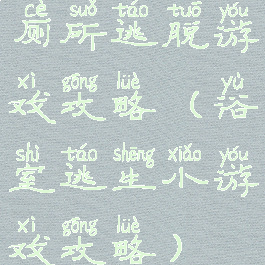 cè suǒ táo tuō yóu
厕所逃脱游
xì gōng lüè yù
戏攻略（浴
shì táo shēng xiǎo yóu
室逃生小游
xì gōng lüè
戏攻略）